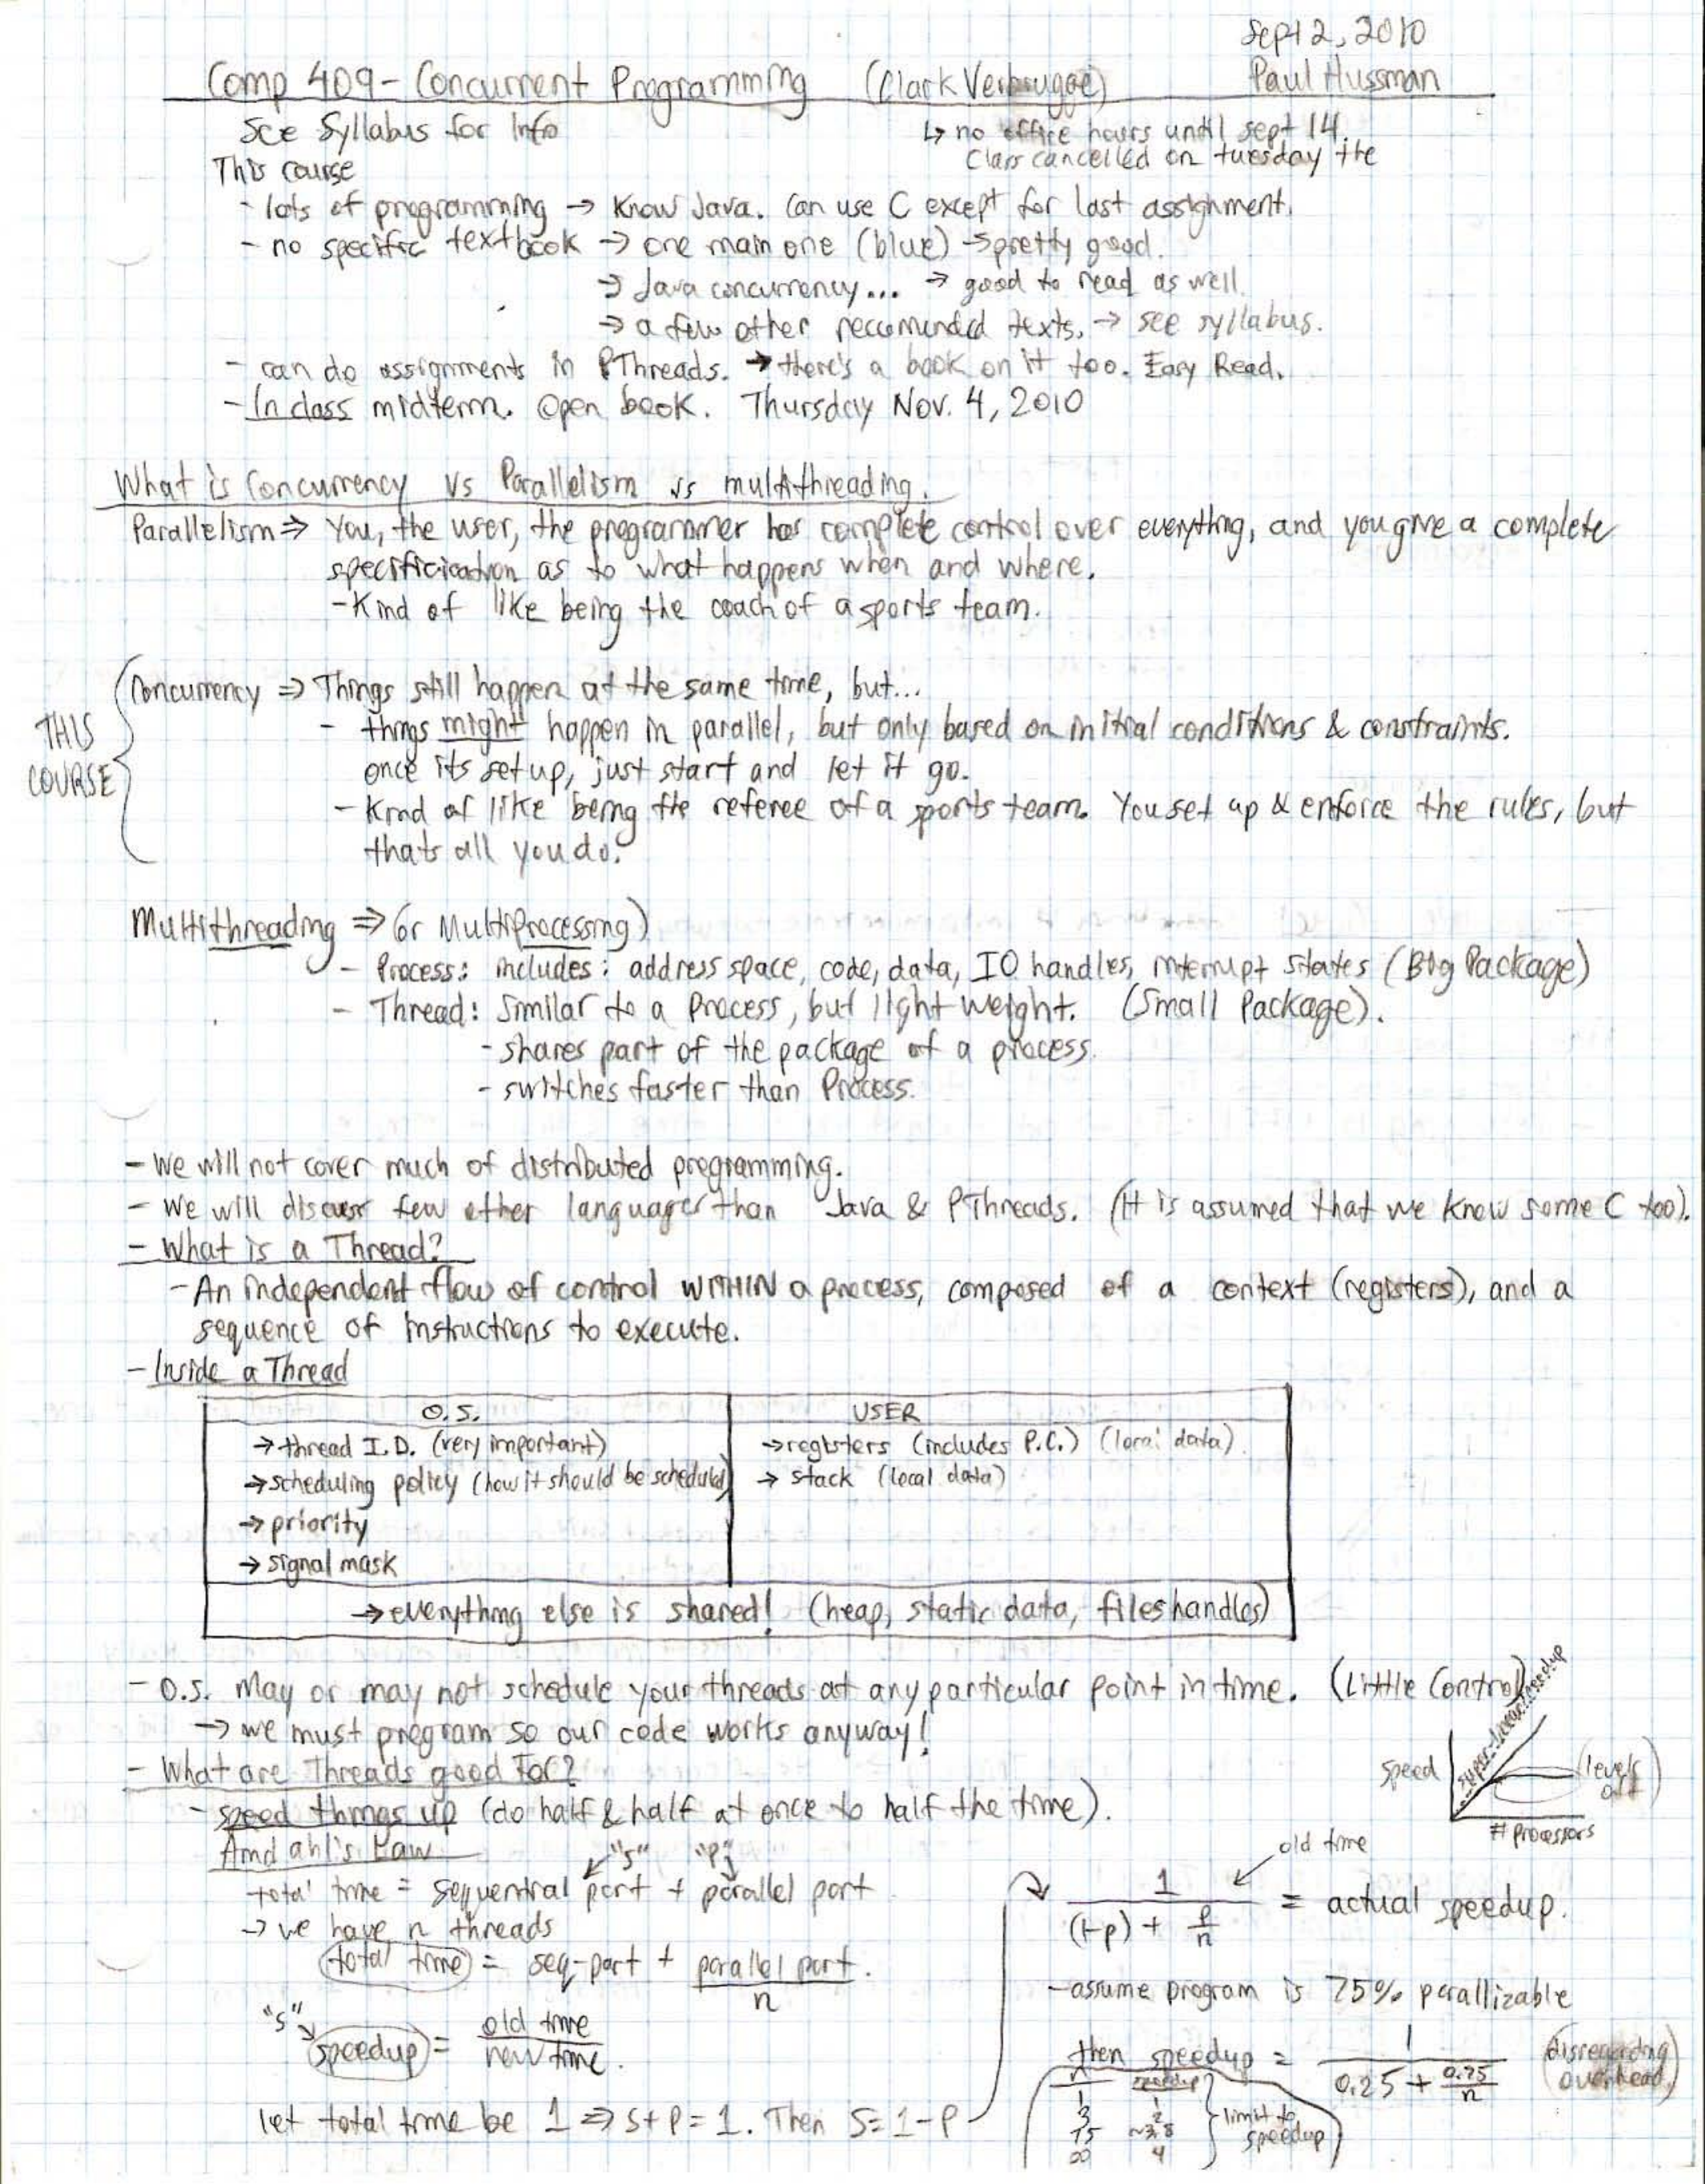 Sept 2, 2010
Comp 409 - Concurrent Programming (Clark Verbrugge) Paul Hussman
See Syllabus for Info
↳ no office hours until sept 14.
Class cancelled on tuesday the
This course
- lots of programming → Know Java. Can use C except for last assignment.
- no specific textbook → one main one (blue) → pretty good.
→ Java concurrency... → good to read as well.
→ a few other recommended texts. → see syllabus.
- can do assignments in PThreads. → there's a book on it too. Easy Read.
- In class midterm. Open book. Thursday Nov. 4, 2010
What is Concurrency vs Parallelism vs multithreading.
Parallelism ⇒ You, the user, the programmer has complete control over everything, and you give a complete
specificication as to what happens when and where.
- Kind of like being the coach of a sports team.
THIS COURSE
Concurrency ⇒ Things still happen at the same time, but...
- things might happen in parallel, but only based on initial conditions & constraints.
once its set up, just start and let it go.
- Kind of like being the referee of a sports team. You set up & enforce the rules, but
thats all you do.
Multithreading ⇒ (or Multiprocessing)
- Process: includes: address space, code, data, IO handles, interrupt states (Big Package)
- Thread: Similar to a Process, but light weight. (Small Package).
- shares part of the package of a process.
- switches faster than Process.
- We will not cover much of distributed programming.
- We will discuss few other languages than Java & PThreads. (It is assumed that we know some C too).
- What is a Thread?
- An independent flow of control WITHIN a process, composed of a context (registers), and a
sequence of instructions to execute.
- Inside a Thread
O.S. USER
→ thread I.D. (very important) → registers (includes P.C.) (local data)
→ scheduling policy (how it should be scheduled) → stack (local data)
→ priority
→ signal mask
→ everything else is shared! (heap, static data, files handles)
- O.S. may or may not schedule your threads at any particular point in time. (Little Control)
→ we must program so our code works anyway!
super-linear speedup
speed
(levels off)
# processors
- What are Threads good For?
- speed things up (do half & half at once to half the time).
Amdahl's Law
"s" "p"
total time = sequential part + parallel part
→ we have n threads
total time = seq-part + parallel part / n
"s"
speedup = old time / new time.
let total time be 1 ⇒ s + p = 1. Then s = 1 - p
old time
1 / (1-p) + p/n = actual speedup.
- assume program is 75% parallizable
then speedup = 1 / 0.25 + 0.75/n (disregarding overhead)
n speedup
1 1
3 2
15 ~3.8
∞ 4
limit to speedup